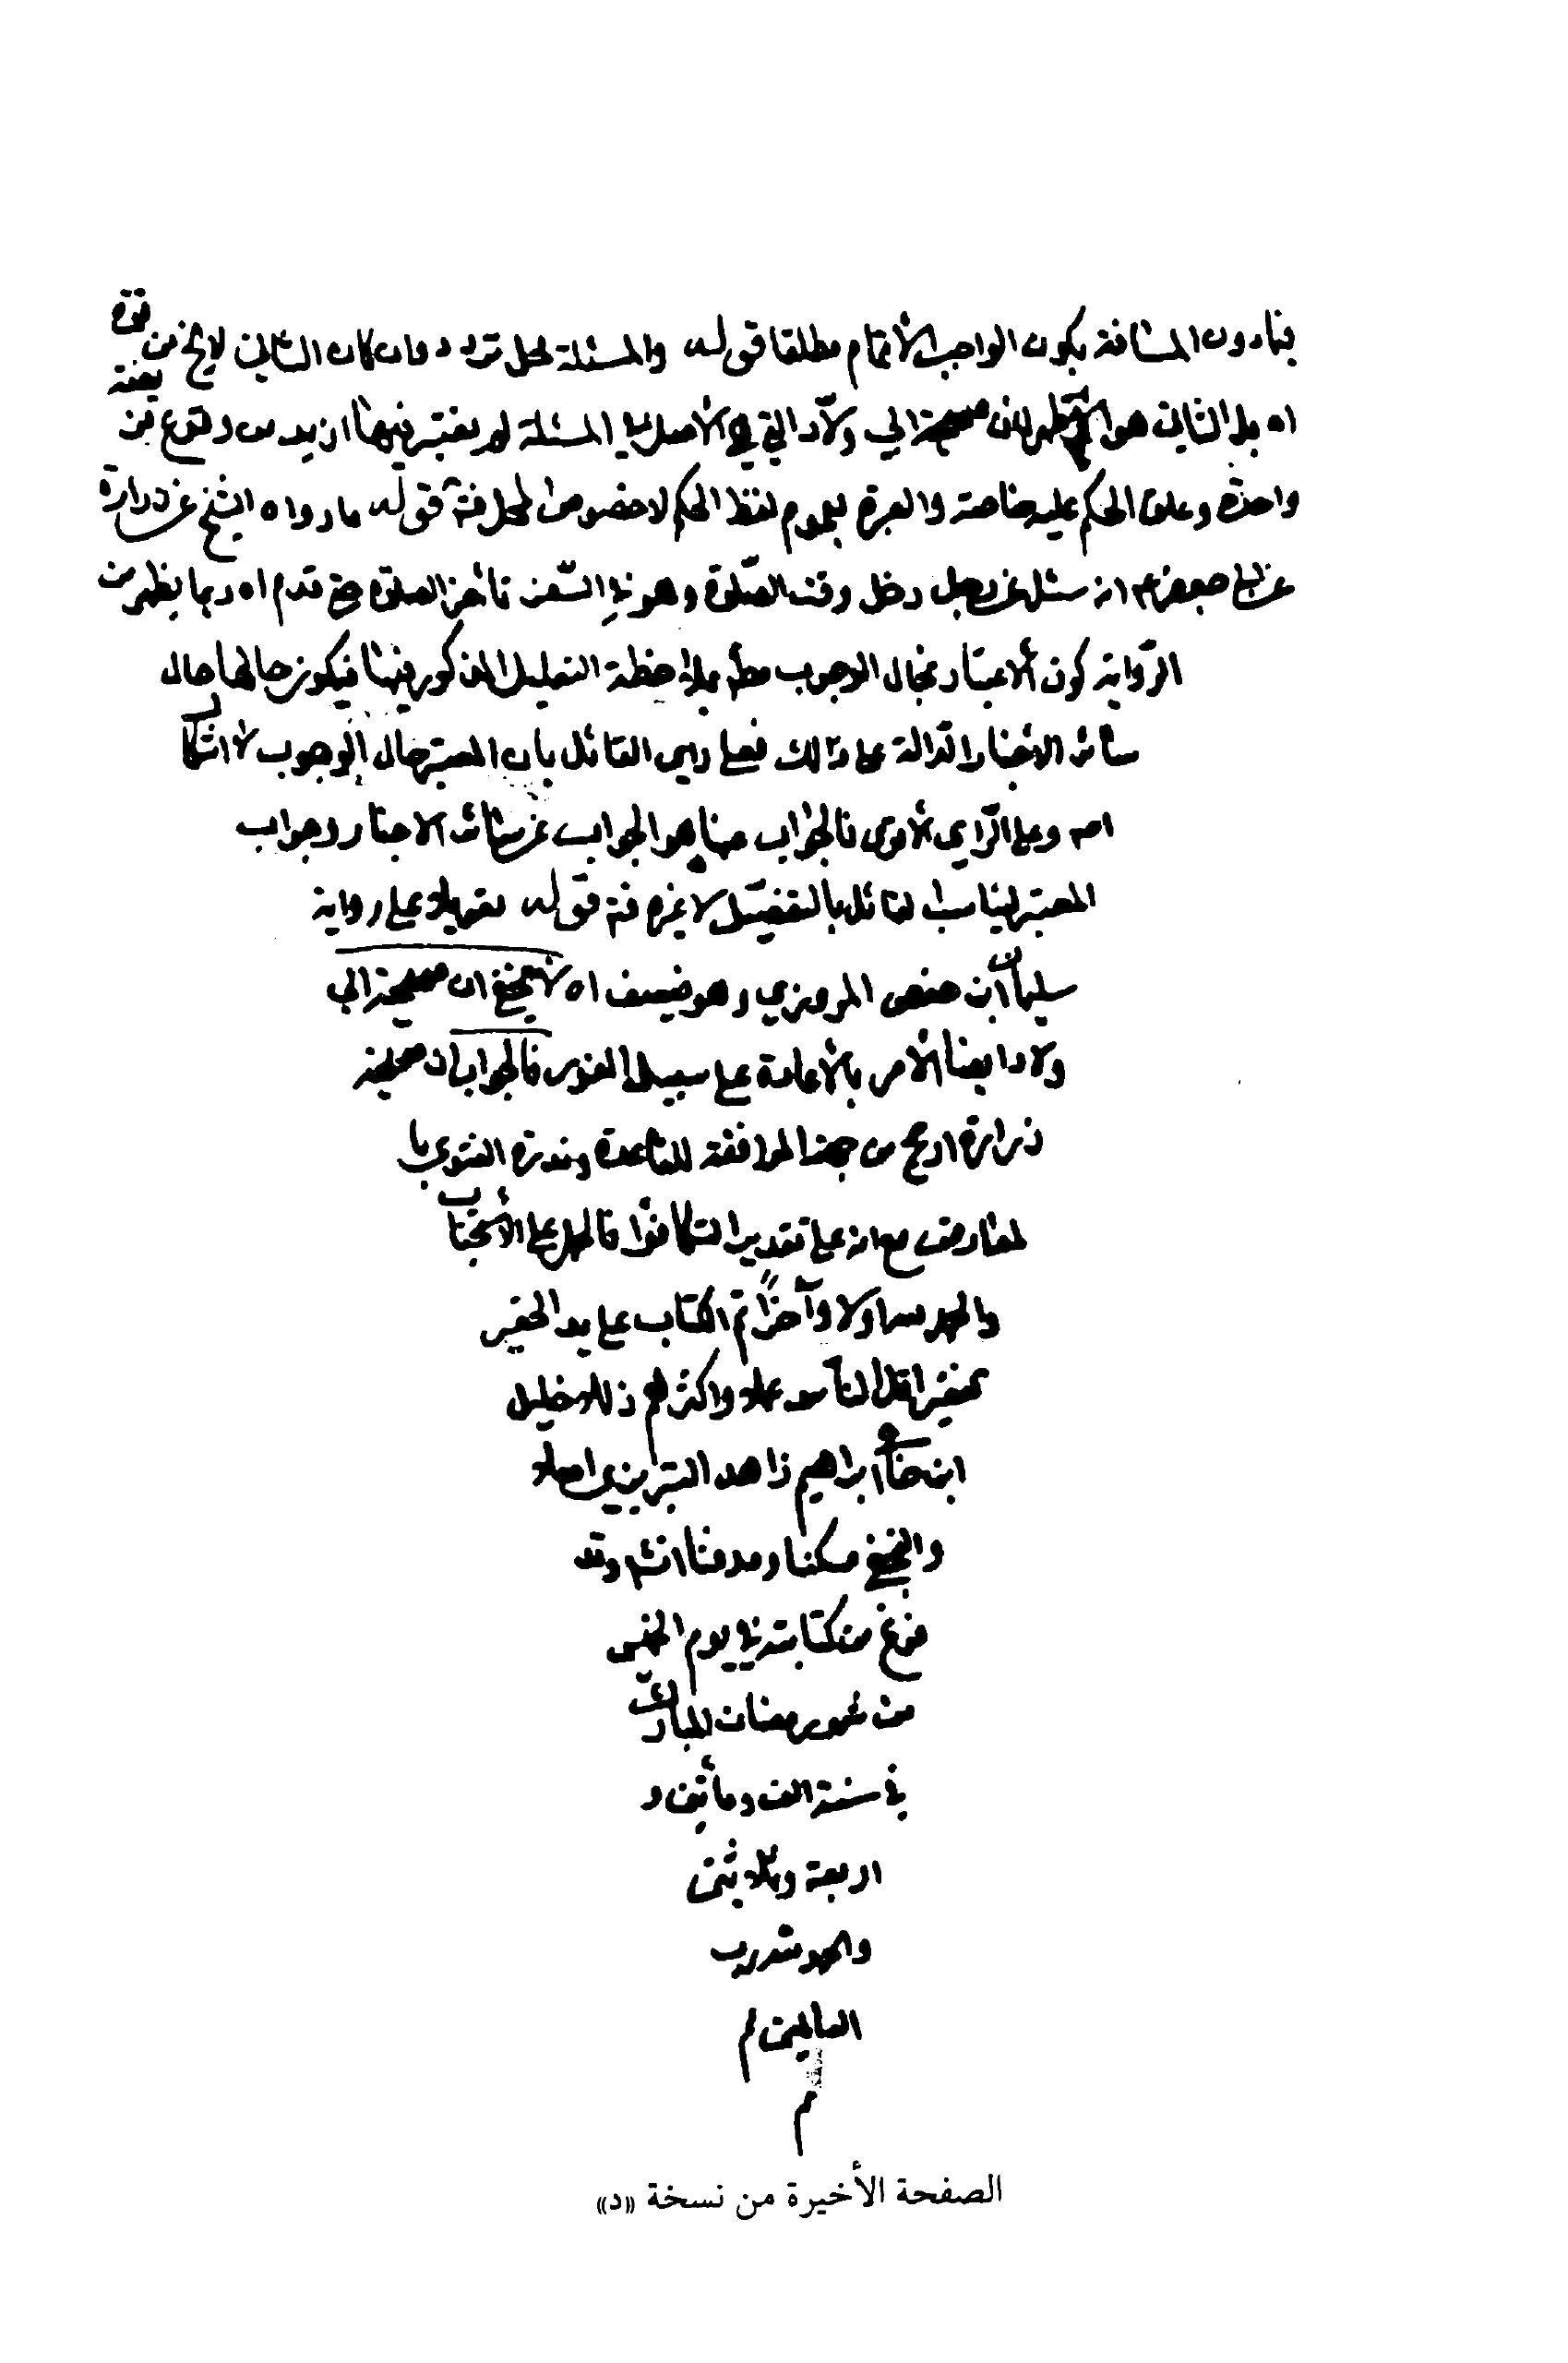 فيما دون المسافة يكون الواجب الأتمام مطلقا قوله والمسئلة محل تردد وان كان الثاني لا يخ من قوة
اه بل الثاني هو الأظهر لان صحيحة ابي ولاد التي هي الأصل في المسئلة لم يعتبر فيها ازيد من وقوع فريضة
واحدة وعلق الحكم عليه خاصة والعبرة بعموم لفظ الحكم لا خصوص المحل فتأمل قوله ما رواه الشيخ عن زرارة
عن ابي جعفر ع انه سئل عن رجل دخل وقت الصلوة وهو في السفر فأخر الصلوة حتى قدم اه ربما يظهر من
الرواية كون الأعتبار بحال الوجوب مطلقا بملاحظة التعليل المذكور فيها فيكون حالها حال
سائر الأخبار الدالة على ذلك فعلى راى القائل بان المعتبر حال الوجوب لا اشكال
اصلا وعلى الراي الأقوى فالجواب عنها هو الجواب عن سائر الاخبار وجواب
المعتبر ليناسب القائل بالتفصيل لا غيره فتأمل قوله تعويلا على رواية
سليمان ابن حفص المروزي وهو ضعيف اه لا يخفى ان صحيحة ابي
ولاد ايضا الأمر بالأعادة على سبيل الفور فالجواب ان صحيحة
زرارة ارجح من جهة الموافقة للقاعدة وندرة الفتوى با
لمعارض مع انه على تقدير التكافؤ فالحمل على الأستحباب
والحمد لله اولا وآخرا تم الكتاب على يد الحقير
الفقير اقل الناس عملا واكثرهم زللا خليل
ابن ابراهيم زاهد التبريزي اصلا
والنجفي مسكنا ومدفنا انشاء وقد
فرغ من كتابته في يوم الخميس
من شهر رمضان المبارك
في سنة الف ومأتين و
اربعة وثلاثين
والحمد لله رب
العالمين م
م
الصفحة الأخيرة من نسخة «د»